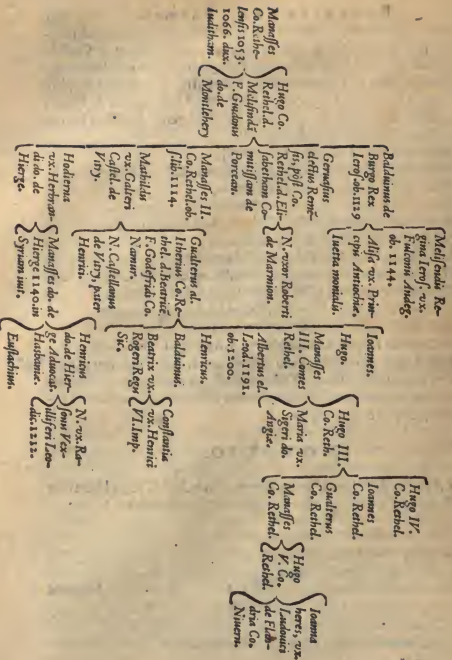 Manasses
Co. Rethe-
lensis 1053.
1066. dux.
Iuditham.
Hugo Co.
Rethel. d.
Melisindā
F. Guidonis
do. de
Montlehery
Balduinus de
Burgo Rex
Ierosol. ob. 1129
Geruasius
electus Remē-
sis, pòst Co.
Rethel. d. Eli-
sabetham Co-
mitissam de
Porcean.
Manasses II.
Co. Rethel. ob.
s. lib. 1114.
Mathildis
vx. Galteri
Castel. de
Vitry.
Hodierna
vx. Herbran-
di do. de
Hierge.
Melisendis Re-
gina Ieros. vx.
Fulconis Andeg.
ob. 1144.
Alisa vx. Prin-
cipis Antiochiæ.
Iuetta monialis.
N. vxor Roberti
de Marmion.
Gualterus al.
Itherius Co. Re-
thel. d. Beatricē
F. Godefridi Co.
Namur.
N. Castellanus
de Vitry, pater
Henrici.
Manasses do. de
Hierge 1140. in
Syriam iuit.
Ioannes.
Hugo.
Manasses
III. Comes
Rethel.
Albertus el.
Leod. 1191.
Henricus.
ob. 1200.
Balduinus.
Beatrix vx.
Rogeri Regis
Sic.
Henricus
do. de Hier-
ge Aduocat.
Hasbaniæ.
Eustachius.
Hugo III
Co. Reth.
Maria vx.
Sigeri do.
Angiæ.
Constantia
vx. Henrici
VI. Imp.
N. vx. Ra-
sonis Vex-
illiferi Leo-
dis. 1212.
Hugo IV.
Co. Rethel.
Ioannes
Co. Rethel.
Gualterus
Co. Rethel.
Manasses
Co. Rethel.
Hugo
V. Co.
Rethel.
Ioanna
heres, vx.
Ludouici
de Flan-
dria Co.
Niuern.